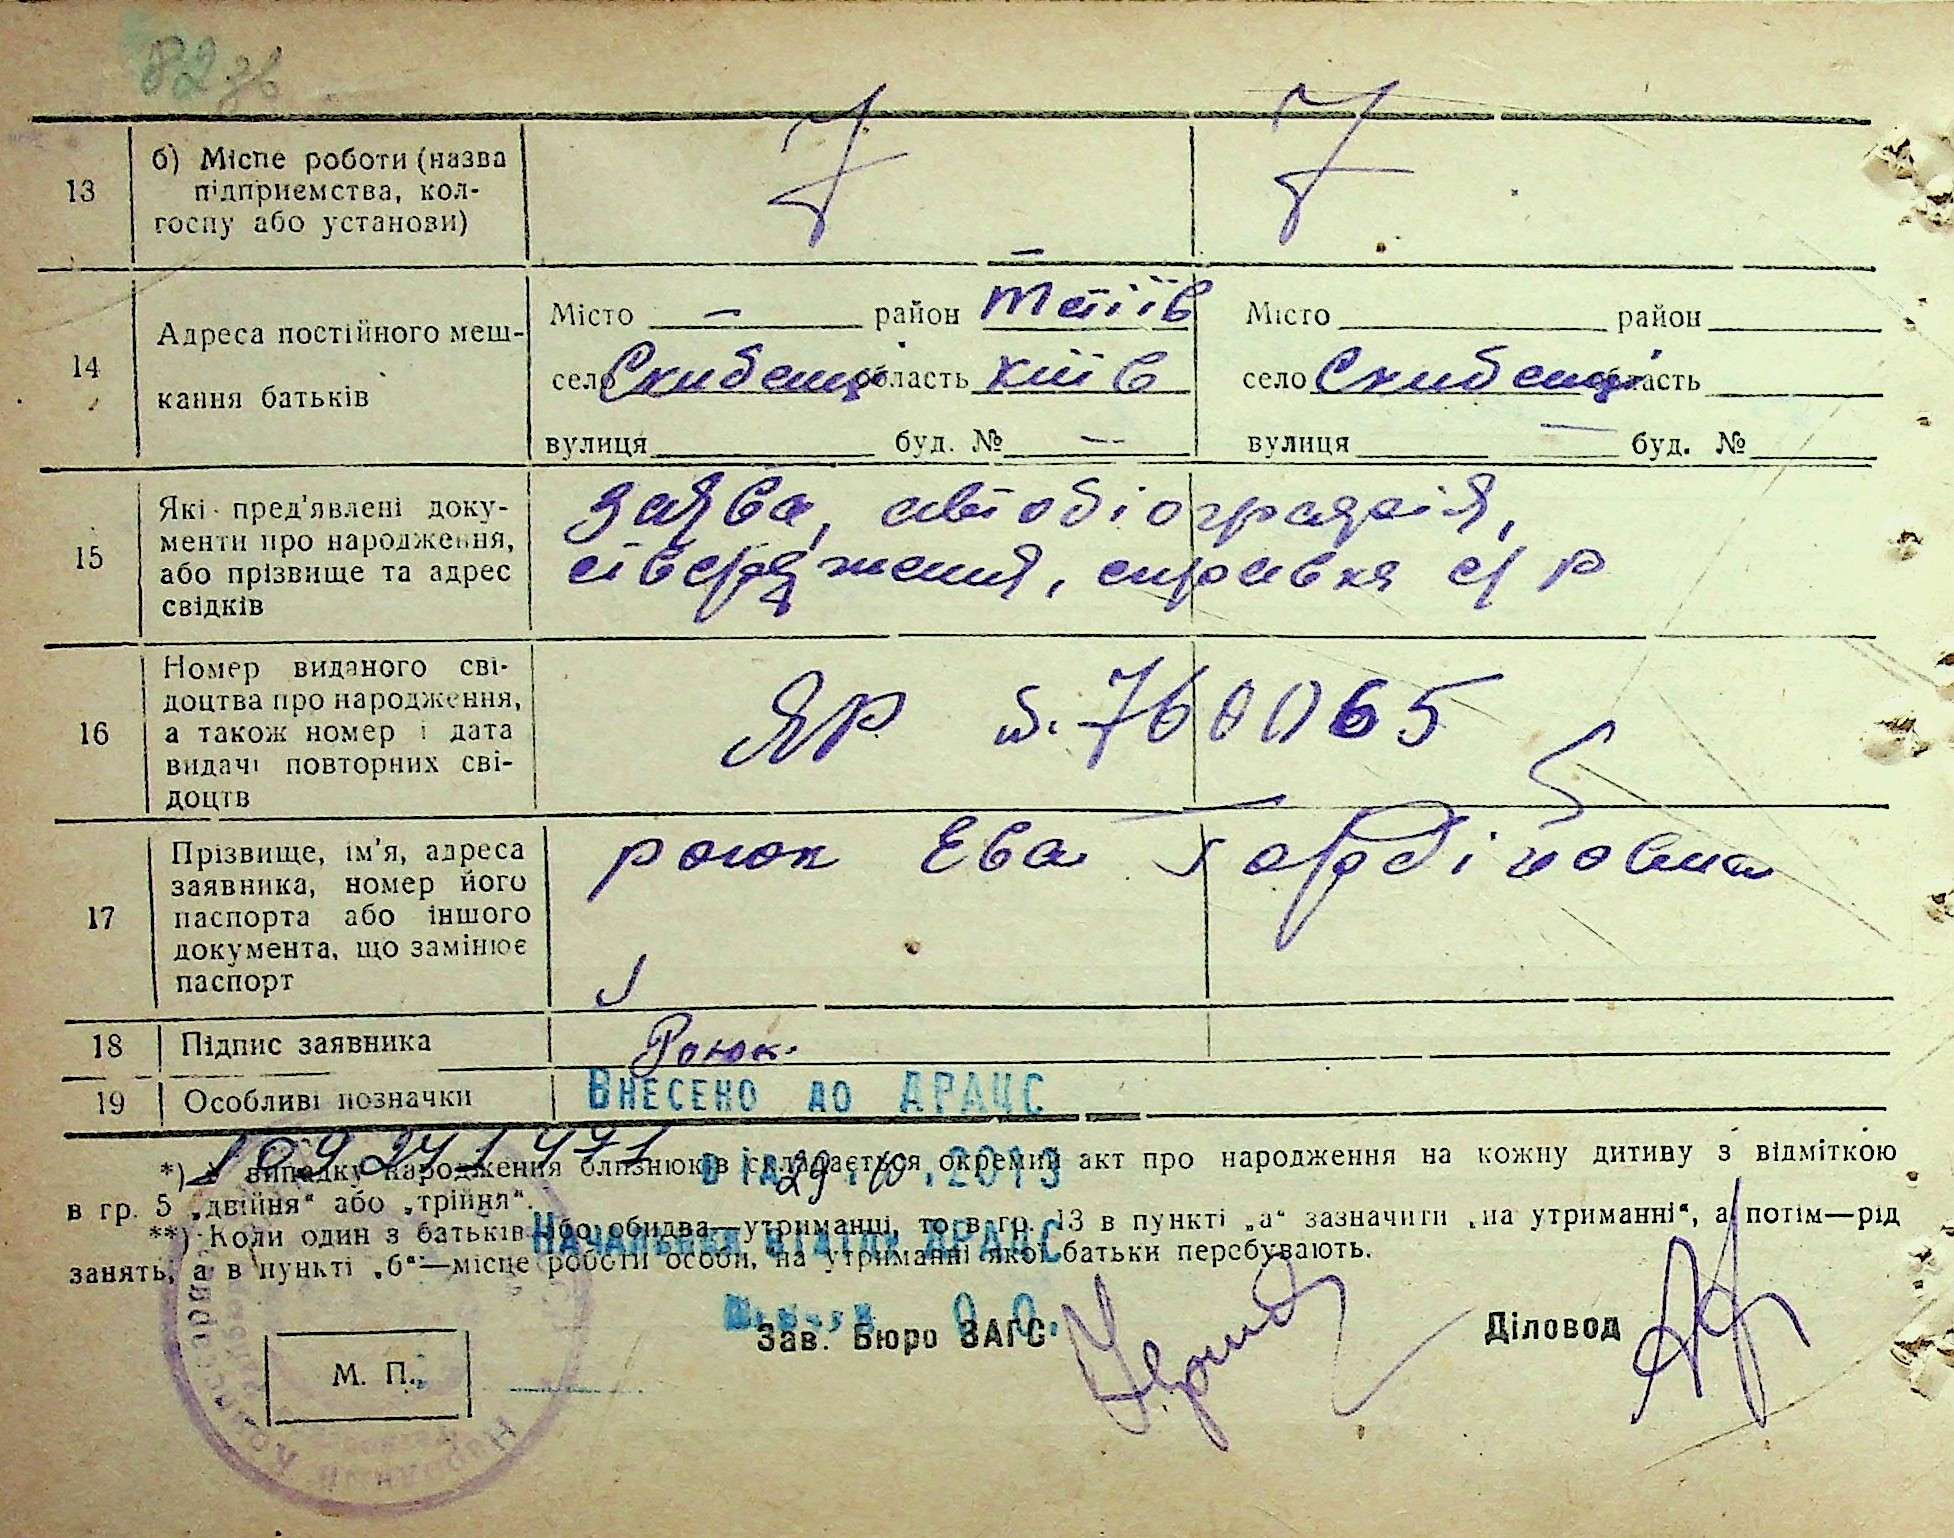 82 зв
13
б) Місце роботи (назва
підприємства, кол-
госпу або установи)
14
Адреса постійного меш-
кання батьків
Місто — район Тетіїв
село Скибенці область Київ
вулиця буд. № —
Місто район
село Скибенці область
вулиця — буд. №
15
Які пред'явлені доку-
менти про народження,
або прізвище та адрес
свідків
Заява, автобіографія,
ствердження, справка с/р
16
Номер виданого сві-
доцтва про народження,
а також номер і дата
видачі повторних сві-
доцтв
ЯР 760065
17
Прізвище, ім'я, адреса
заявника, номер його
паспорта або іншого
документа, що замінює
паспорт
Роюк Ева Гордійовна
18
Підпис заявника
Роюк.
19
Особливі позначки
Внесено до ДРАЦС
*) У випадку народження близнюків складається окремий акт про народження на кожну дитину з відміткою
від 29.10.2013
в гр. 5 „двійня“ або „трійня“.
**) Коли один з батьків або обидва—утриманці, то в гр. 13 в пункті „а“ зазначити „на утриманні“, а потім—рід
Начальник відділу ДРАЦС
занять, а в пункті „б“—місце роботи особи, на утриманні якої батьки перебувають.
О.О.
Зав. Бюро ЗАГС
Діловод
М. П.